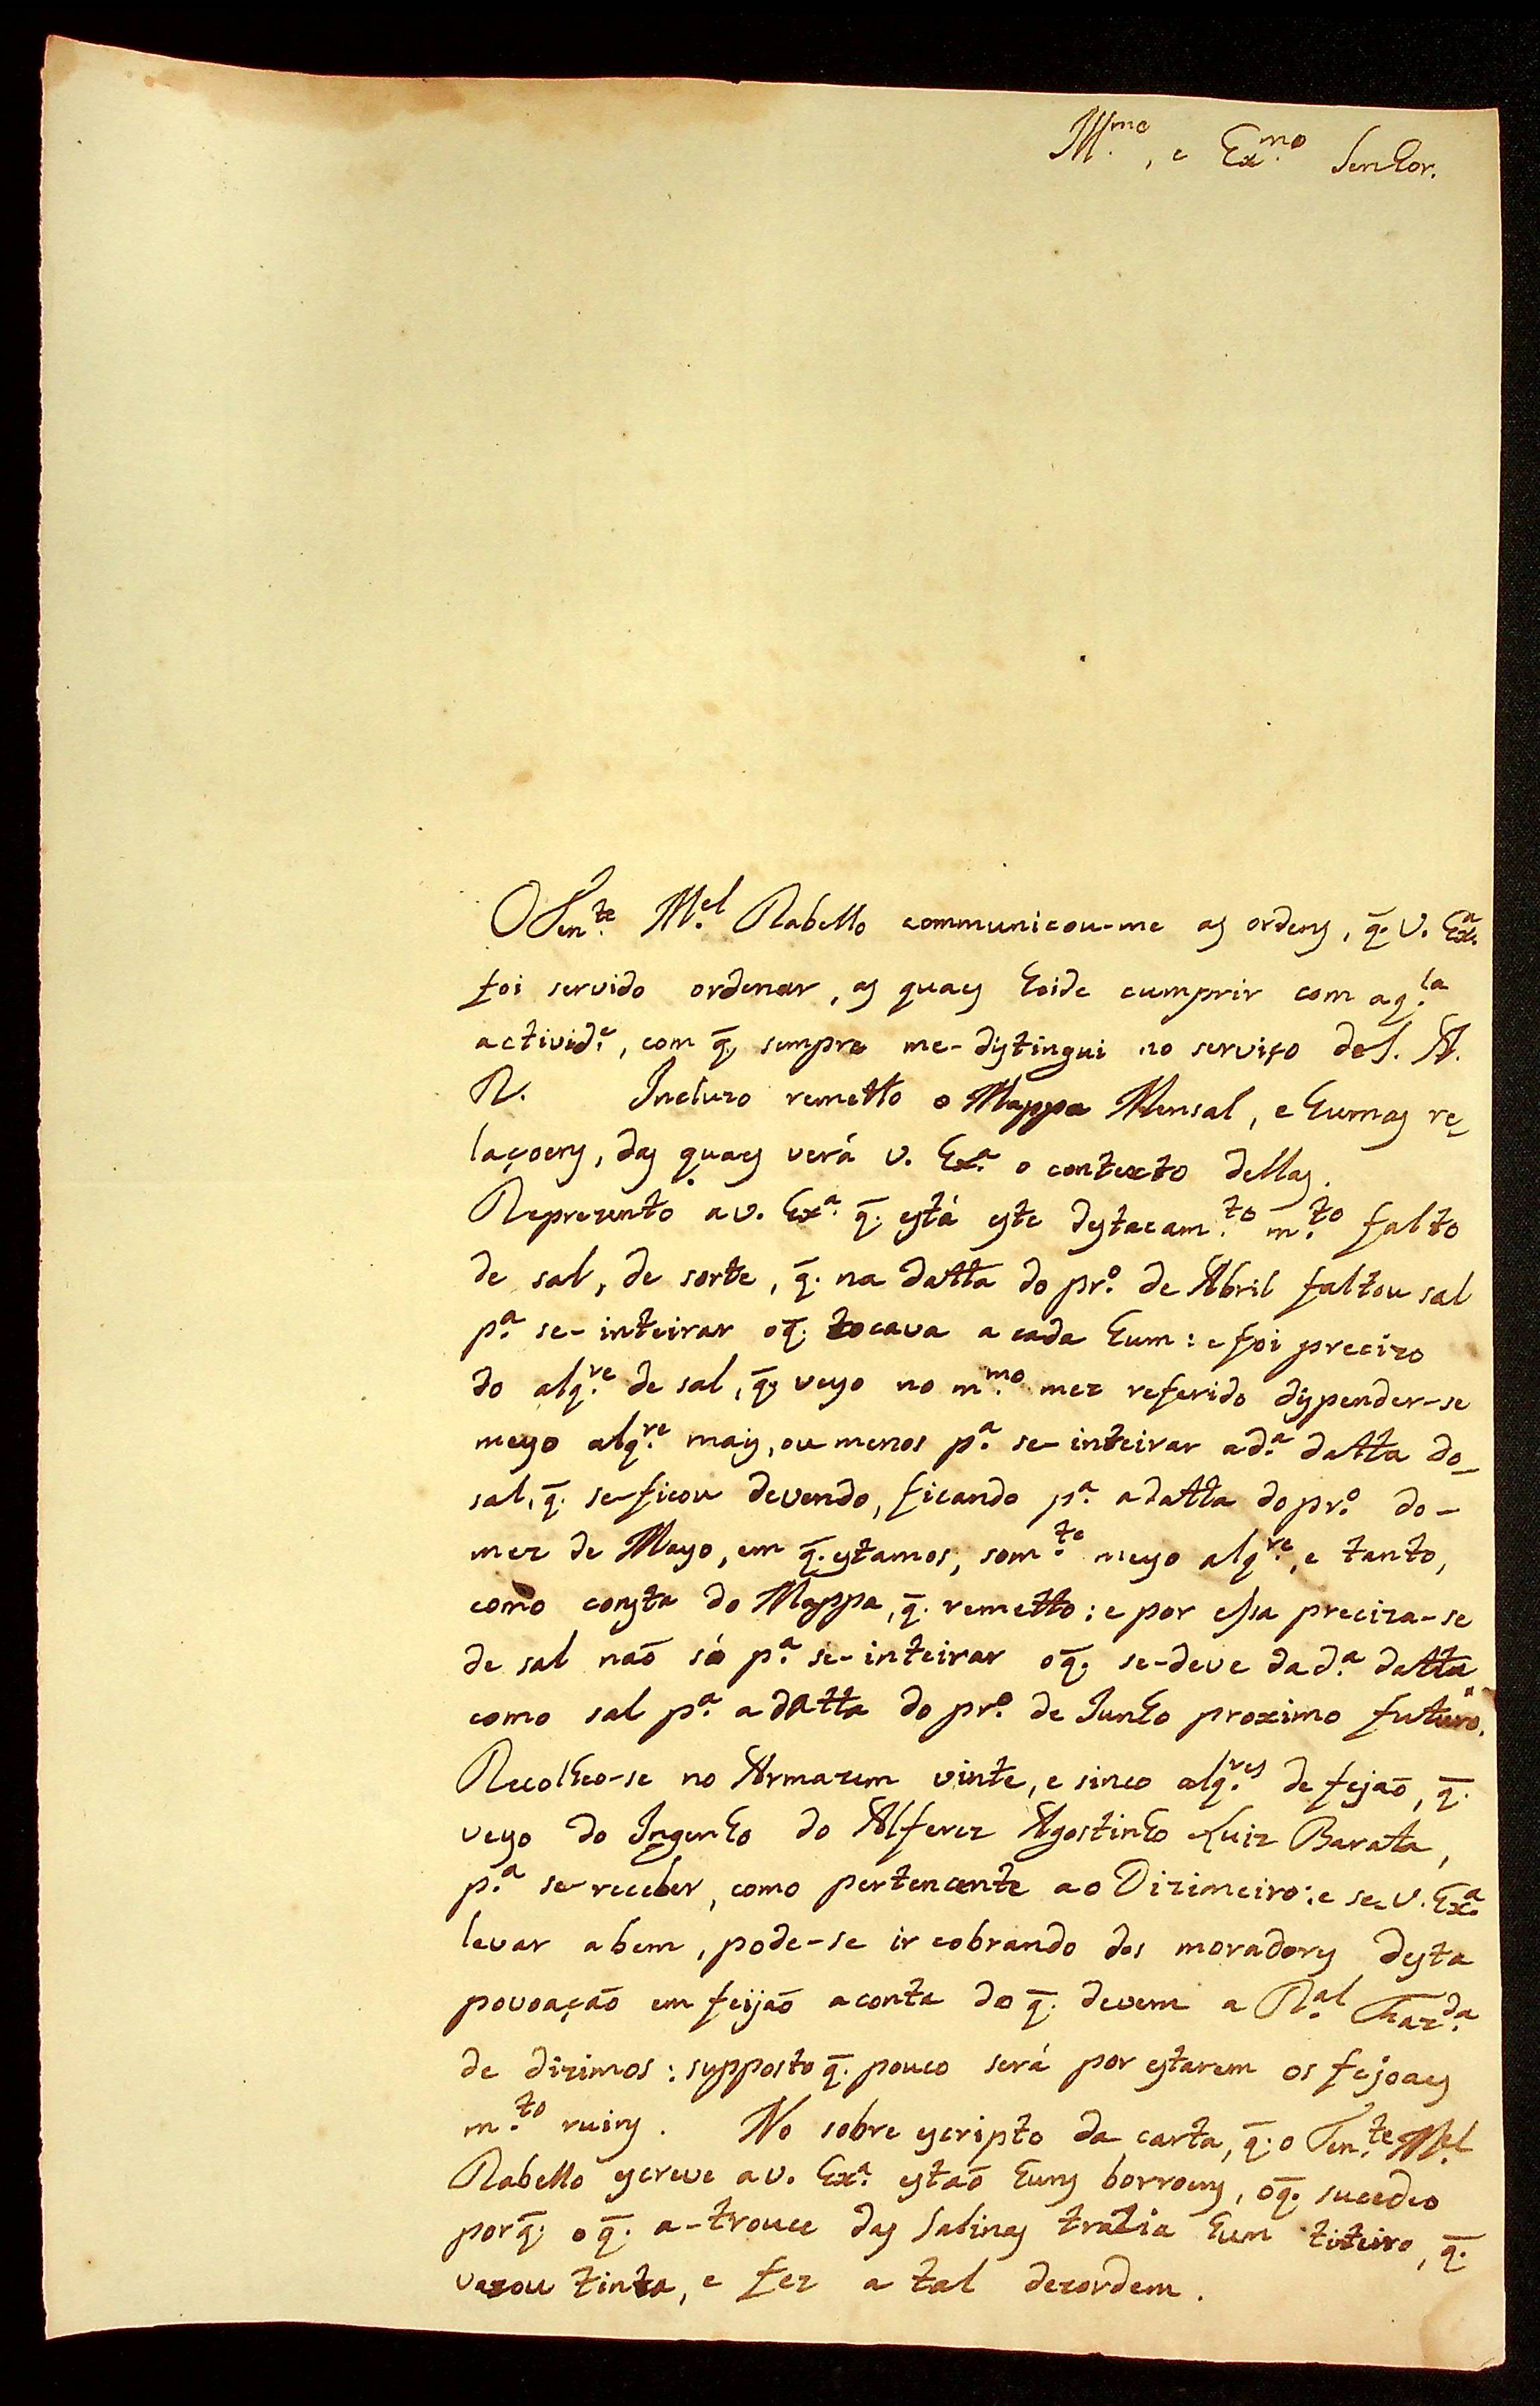 Ill.mo, e Ex.mo Senhor.
O Ten.te M.el Rabello communicou-me as ordens, q̄. V. Ex.a
foi servido ordenar, as quaes heide cumprir com aq.la
activid.e, com q̄. sempre me-distingui no serviço de S. A.
R. Incluzo remetto o Mappa Mensal, e humas re-
laçoens, das quaes verá V. Ex.a o contexto dellas.
Reprezento a V. Ex.a q̄. está este destacam.to m.to falto
de sal, de sorte, q̄. na datta do pr.o de Abril faltou sal
p.a se-inteirar oq̄. tocava a cada hum: e foi precizo
do alq.re de sal, q̄. veyo no m.mo mez referido dispender-se
meyo alq.re mais, ou menos p.a se-inteirar ad.a datta do-
sal, q̄. se-ficou devendo, ficando p.a adatta do pr.o do-
mez de Mayo, em q̄. estamos, som.te meyo alq.re, e tanto,
como consta do Mappa, q̄. remetto: e por essa preciza-se
de sal naõ só p.a se-inteirar oq̄. se-deve dad.a datta
como sal p.a adatta do pr.o de Junho proximo futuro.
Recolheo-se no Armazem vinte, e sinco alq.res de fejaõ, q̄.
veyo do Ingenho do Alferez Agostinho Luiz Barata,
p.a se-receber, como pertencente ao Dizimeiro: e se V. Ex.a
levar abem, pode-se ir cobrando dos moradores desta
povoaçaõ em feijaõ aconta do q̄. devem a R.al Faz.da
de dizimos: supposto q̄. pouco será por estarem os fejoaes
m.to ruins. No sobre escripto da carta, q̄. o Ten.te M.el
Rabello escreve a V. Ex.a estaõ huns borroens, oq̄. sucedeo
porq̄. oq̄. a-trouce das Salinas trazia hum titeiro, q̄.
vazou tinta, e fez a tal dezordem.